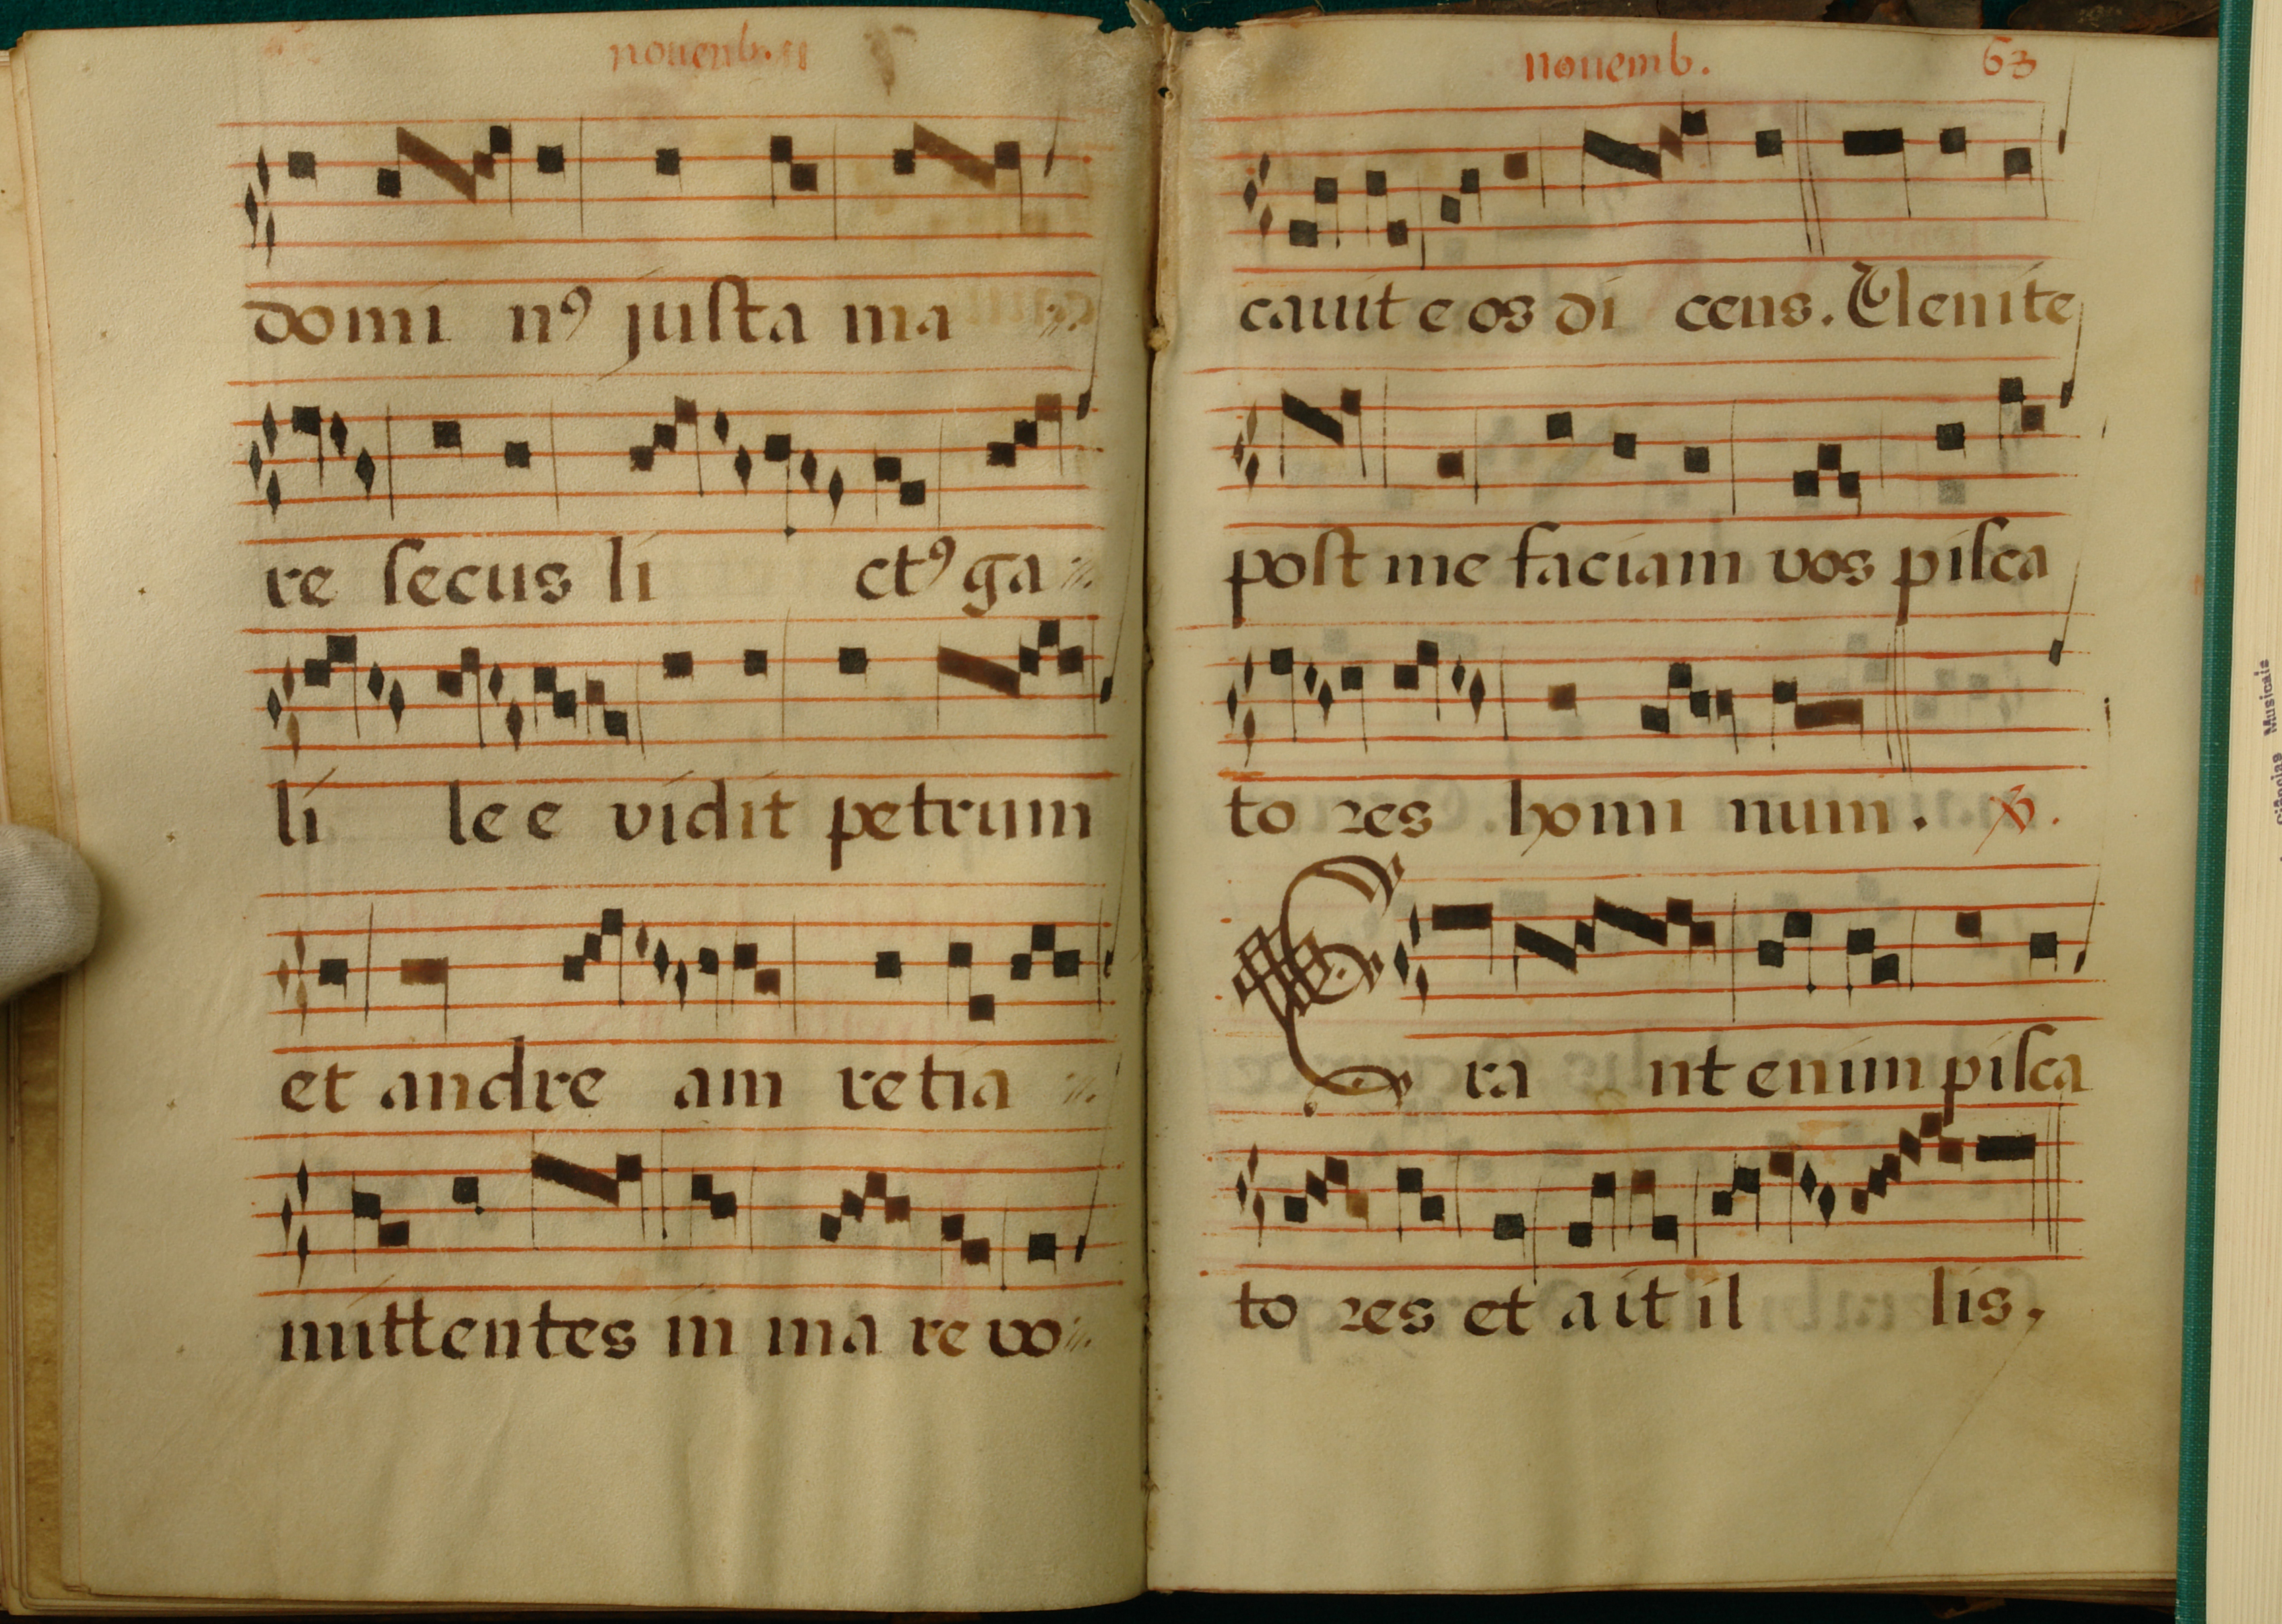 nouemb.
domi nꝰ juſta ma
re ſecus li ctꝰ ga
li le e vidit petrum
et andre am retia
mittentes in ma re vo
nouemb. 63
cauit e os di cens. Uenite
poſt me faciam vos piſca
to ꝛes homi num. ℣.
Era nt enim piſca
to ꝛes et ait il lis,
Musicais